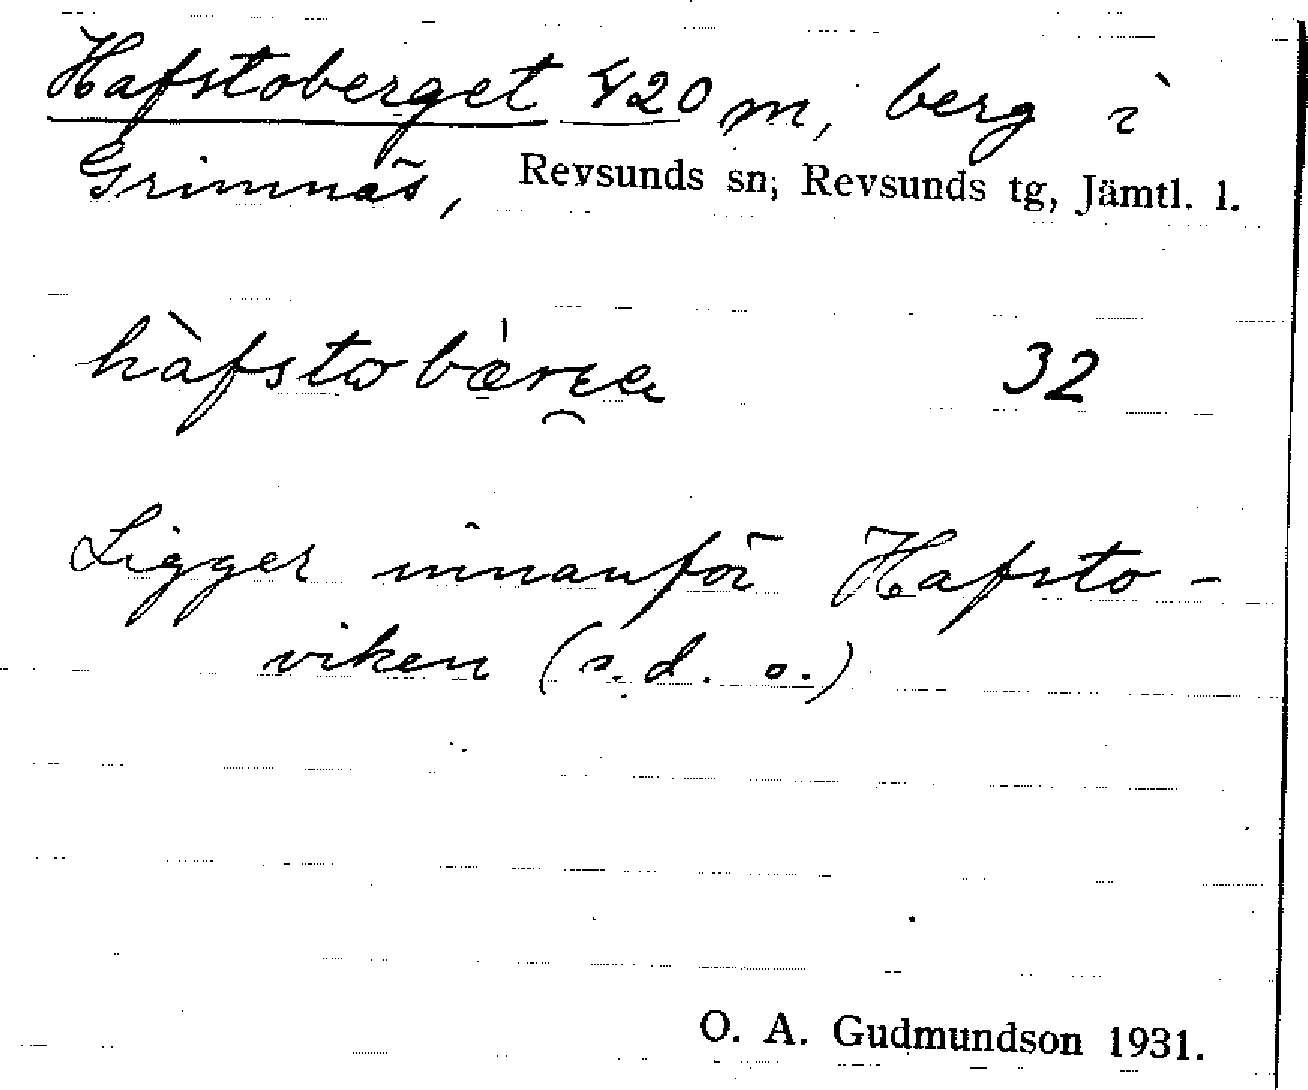 Hafstoberget 420 m, berg i
Grimnäs, Revsunds sn; Revsunds tg, Jämtl. l.
32
Ligger innanför Hafsto-
viken (s.d. o.)
O. A. Gudmundson 1931.